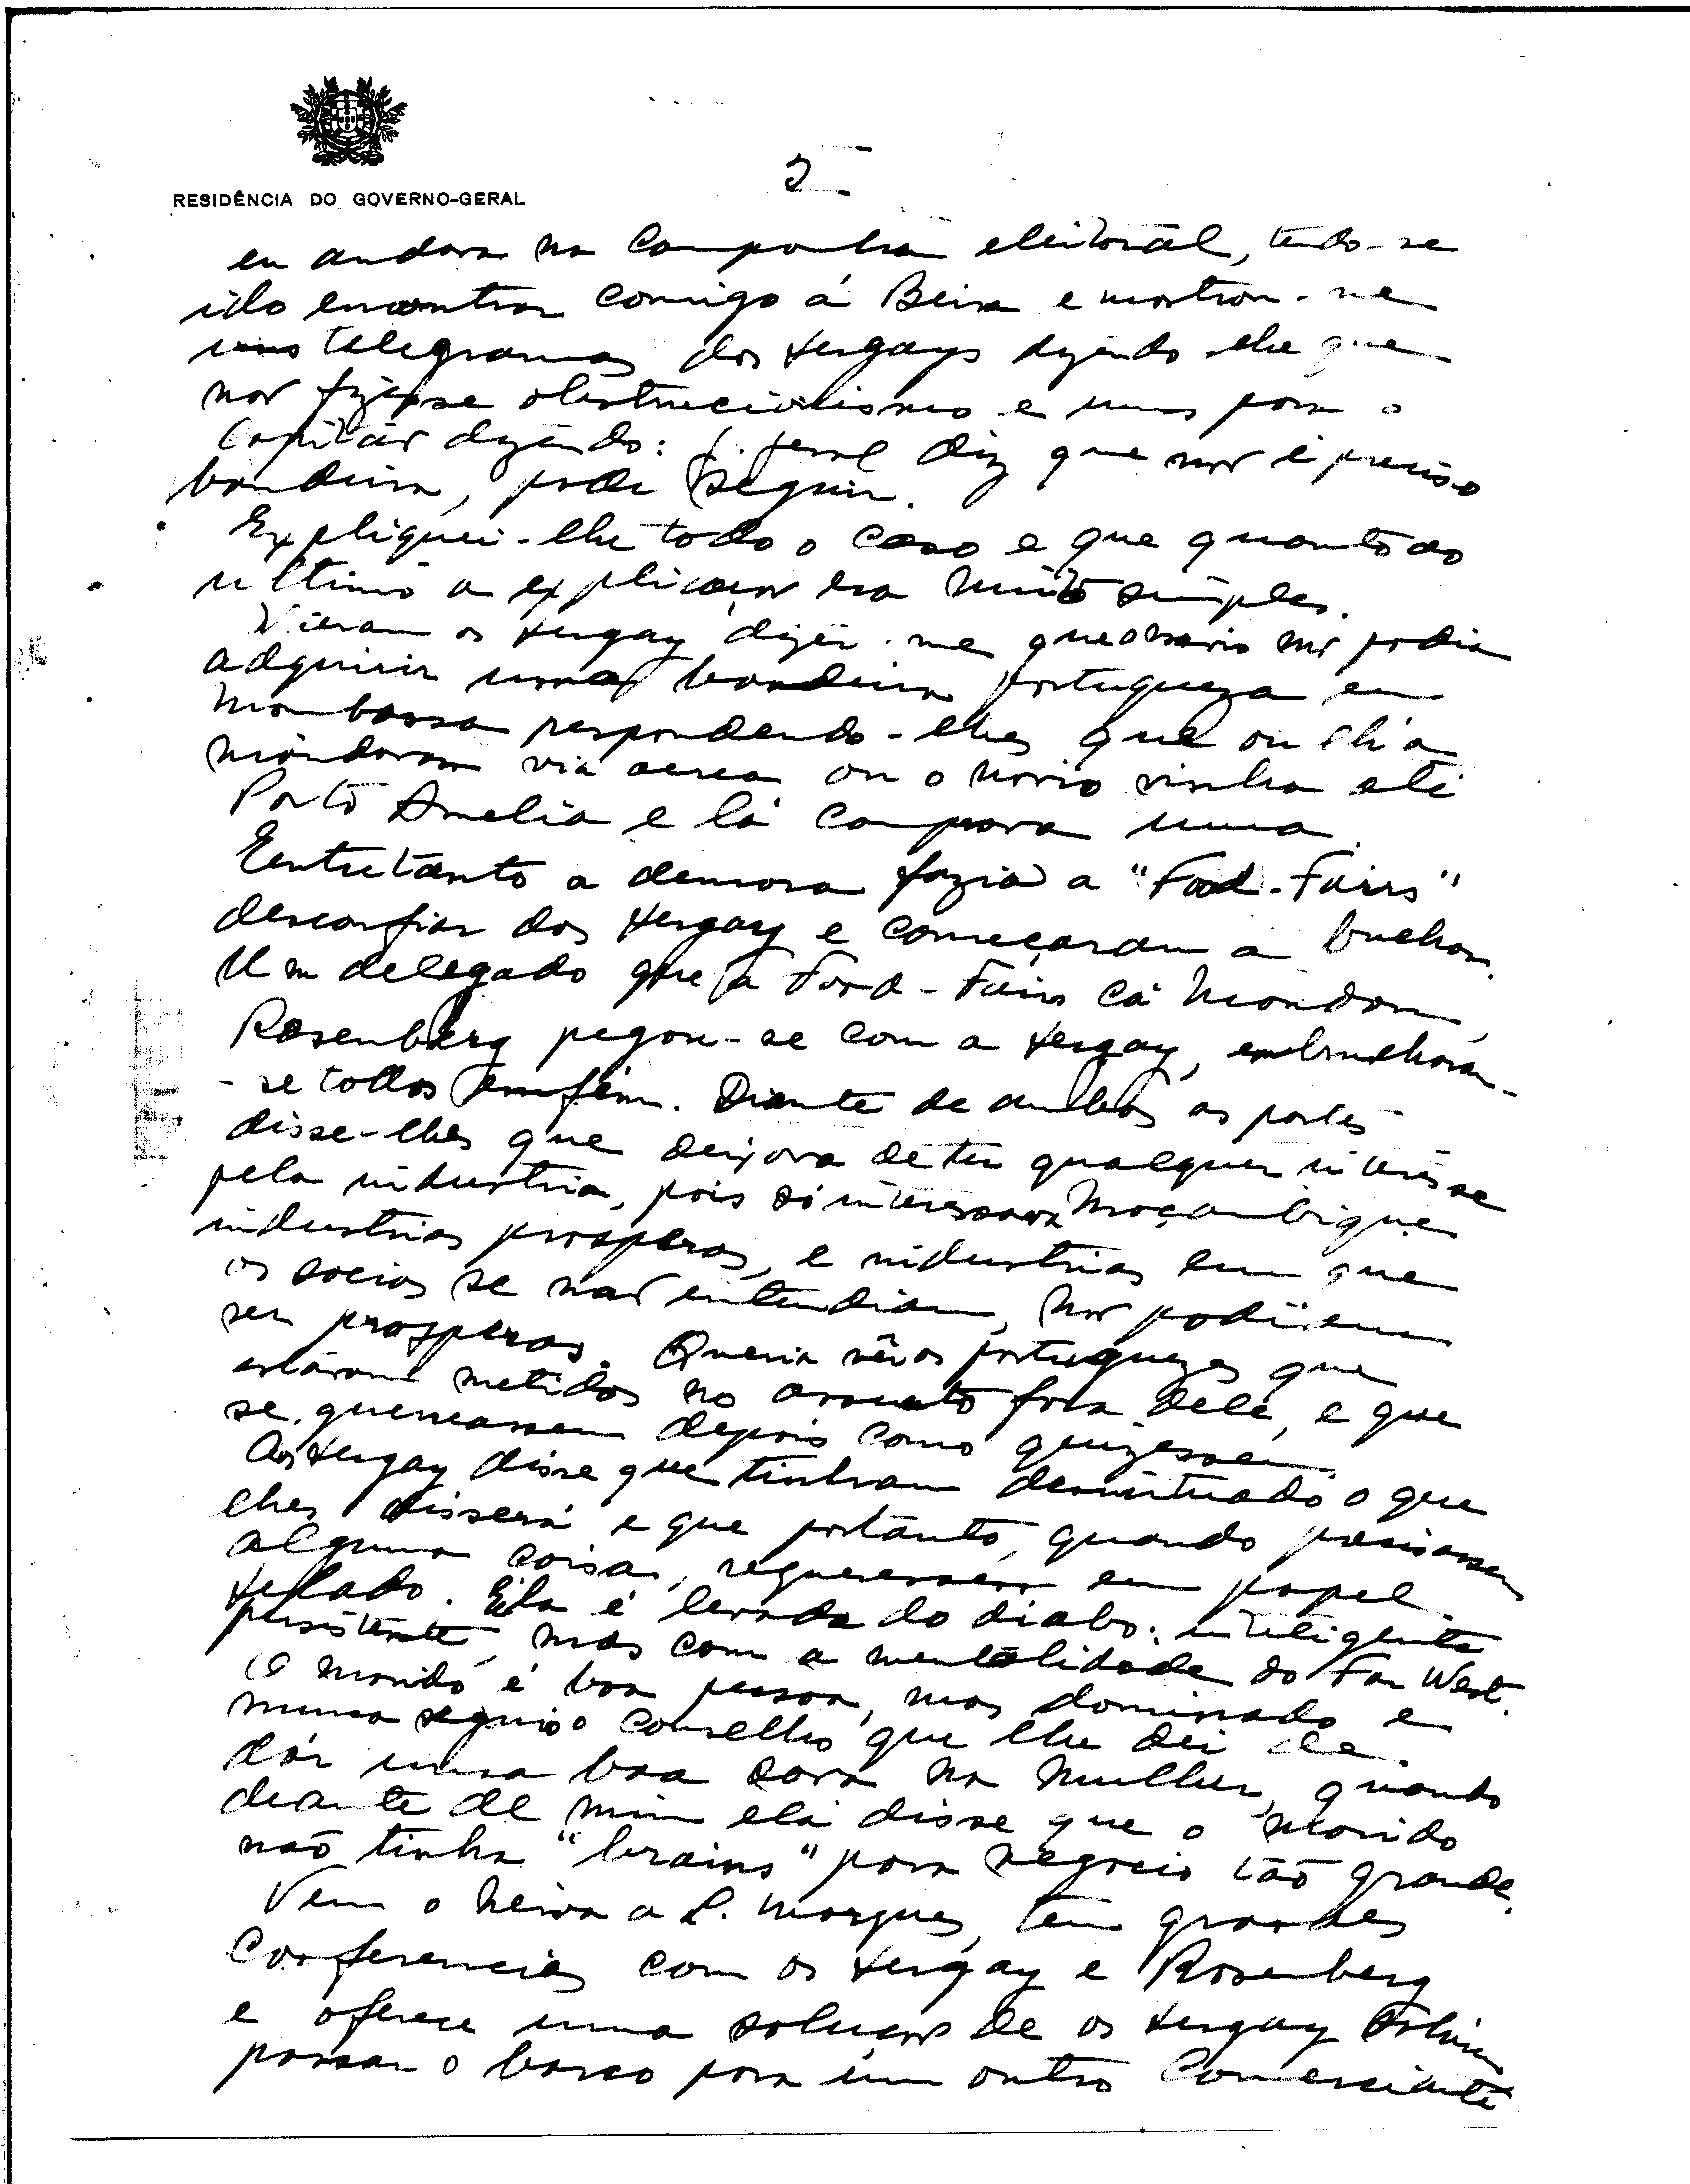 RESIDÊNCIA DO GOVERNO-GERAL
2
eu andava na Campanha eleitoral, tendo-se
ido encontrar comigo á Beira e mostrou-me
uns telegramas dos Hergays dizendo-lhe que
não fizesse obstruccionismo e uns para o
Capitão dizendo: G. Geral diz que não é preciso
bandeira, pode seguir.
Expliquei-lhe todo o caso e que quanto ao
ultimo a explicação era muito simples.
Vieram os Hergay dizer-me que o navio não podia
adquirir uma bandeira portugueza em
Mombassa respondendo-lhes que ou lh'a
mandavam via aerea ou o navio vinha até
Porto Amelia e lá comprava uma.
Eentretanto a demora fazia a "Food-Fairs"
desconfiar dos Hergay e começaram a bulhar.
Um delegado que a Food-Fairs cá mandou,
Rosenberg pegou-se com a Hergay, embrulharam-
-se todos emfim. Diante de ambas as partes
disse-lhes que deixava de ter qualquer interesse
pela industria, pois só interessava Moçambique
industrias prosperas, e industrias em que
os socios se não entendiam, não podiam
ser prosperas. Queria vêr os portuguezes que
estavam metidos no assunto fora dele, e que
se queneassem depois como quizessem.
Aos Hergay disse que tinham desvirtuado o que
lhes dissera e que portanto, quando precisassem
alguma coisa, requeressem em papel
selado. Ela é levada do diabo: inteligente
persistente, mas com a mentalidade do Far West.
O marido é boa pessoa, mas dominado e
nunca seguiu o conselho que lhe dei de
dár uma boa sova na mulher, quando
deante de mim ela disse que o marido
não tinha "brains" para negocio tão grande.
Vem o Neiva a L. Marques, tem grandes
Conferencias com os Hergay e Rosenberg
e oferece uma solução de os Hergay
passar o barco para um outro Comerciante